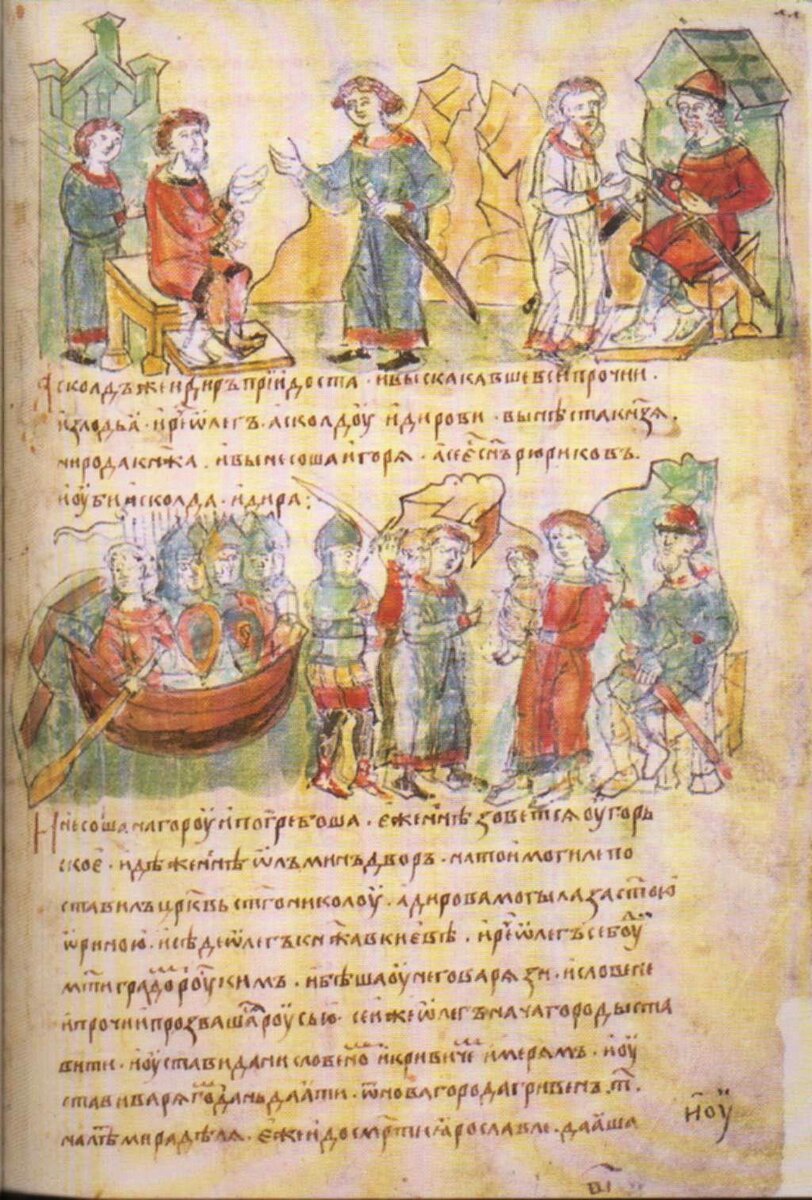 Асколдъ же и диръ прїидоста · и выскакавше вси прочии ·
и злодьа · и рⷱ҇е ѡлегъ · асколдоу и дирови · вы нѣста кнѧзѧ ·
ни рода кнѧжа · и вынесоша игорѧ · а се єⷭ҇ сн҃ъ рюриковъ ·
и оуби асколда · и дира :
И несоша на гороу и погребоша · єже нн҃ѣ зоветсѧ оугорь
скоє · идѣже нн҃ѣ ѡлъминъ дворъ · на тои могиле по
ставилъ црⷦ҇вь ст҃го николоу · а дирова могыла за ст҃ою
ѡриною · и сѣде ѡлегъ кнѧжа в киевѣ · и рⷱ҇е ѡлегъ се боуⷣ
мт҃и градоⷨ роускимъ · и бѣша оу него варѧзи · и словене
и прочии прозвашаⷭ роусью · сеи же ѡлегъ нача городы ста
вити · и оустави дани словеноⷨ и кривичеⷨ и мерѧмъ · и оу
стави варѧгоⷨ дань даѧти · ѿ новагорода гривенъ · т҃ ·
на лт҃ѣ мира дѣлѧ · єже и до смр҃ти ꙗрославле · даꙗша
и оу